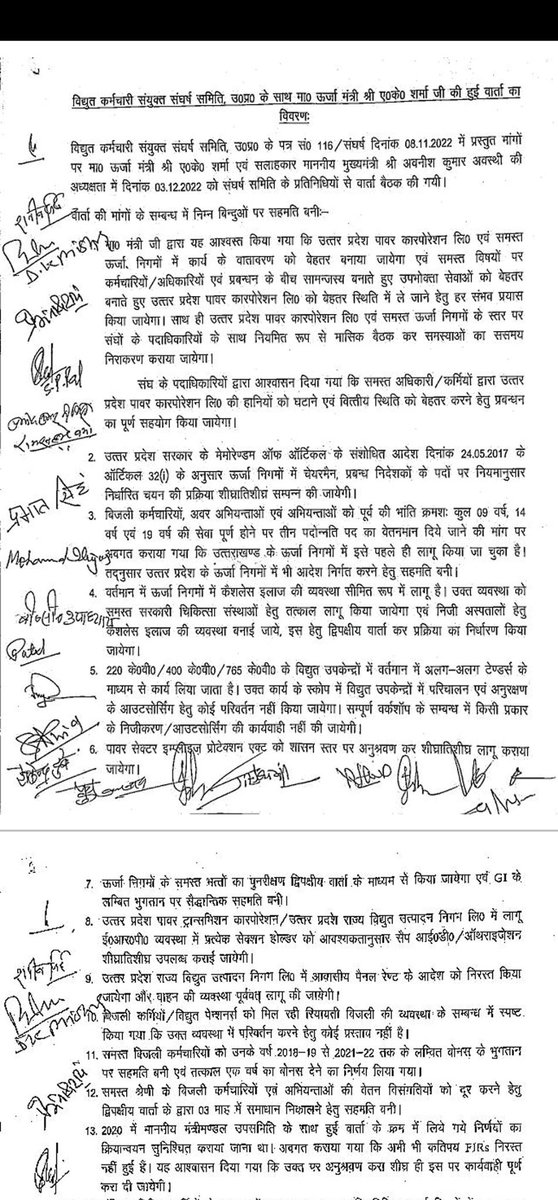 विद्युत कर्मचारी संयुक्त संघर्ष समिति, उ०प्र० के साथ मा० ऊर्जा मंत्री श्री ए०के० शर्मा जी की हुई वार्ता का
विवरणः
विद्युत कर्मचारी संयुक्त संघर्ष समिति, उ०प्र० के पत्र सं० 116/संघर्ष दिनांक 08.11.2022 में प्रस्तुत मांगों
पर मा० ऊर्जा मंत्री श्री ए०के० शर्मा एवं सलाहकार माननीय मुख्यमंत्री श्री अवनीश कुमार अवस्थी की
अध्यक्षता में दिनांक 03.12.2022 को संघर्ष समिति के प्रतिनिधियों से वार्ता बैठक की गयी।
वार्ता की मांगों के सम्बन्ध में निम्न बिन्दुओं पर सहमति बनीः-
मा० मंत्री जी द्वारा यह आश्वस्त किया गया कि उत्तर प्रदेश पावर कारपोरेशन लि० एवं समस्त
ऊर्जा निगमों में कार्य के वातावरण को बेहतर बनाया जायेगा एवं समस्त विषयों पर
कर्मचारियों/अधिकारियों एवं प्रबन्धन के बीच सामन्जस्य बनाते हुए उपभोक्ता सेवाओं को बेहतर
बनाते हुए उत्तर प्रदेश पावर कारपोरेशन लि० को बेहतर स्थिति में ले जाने हेतु हर संभव प्रयास
किया जायेगा। साथ ही उत्तर प्रदेश पावर कारपोरेशन लि० एवं समस्त ऊर्जा निगमों के स्तर पर
संघों के पदाधिकारियों के साथ नियमित रूप से मासिक बैठक कर समस्याओं का ससमय
निराकरण कराया जायेगा।
संघ के पदाधिकारियों द्वारा आश्वासन दिया गया कि समस्त अधिकारी/कर्मियों द्वारा उत्तर
प्रदेश पावर कारपोरेशन लि० की हानियों को घटाने एवं वित्तीय स्थिति को बेहतर करने हेतु प्रबन्धन
का पूर्ण सहयोग किया जायेगा।
2. उत्तर प्रदेश सरकार के मेमोरेण्डम ऑफ ऑर्टिकल के संशोधित आदेश दिनांक 24.05.2017 के
ऑर्टिकल 32(i) के अनुसार ऊर्जा निगमों में चेयरमैन, प्रबन्ध निदेशकों के पदों पर नियमानुसार
निर्धारित चयन की प्रक्रिया शीघ्रातिशीघ्र सम्पन्न की जायेगी।
3. बिजली कर्मचारियों, अवर अभियन्ताओं एवं अभियन्ताओं को पूर्व की भांति क्रमशः कुल 09 वर्ष, 14
वर्ष एवं 19 वर्ष की सेवा पूर्ण होने पर तीन पदोन्नति पद का वेतनमान दिये जाने की मांग पर
अवगत कराया गया कि उत्तराखण्ड के ऊर्जा निगमों में इसे पहले ही लागू किया जा चुका है।
तद्नुसार उत्तर प्रदेश के ऊर्जा निगमों में भी आदेश निर्गत करने हेतु सहमति बनी।
4. वर्तमान में ऊर्जा निगमों में कैशलेस इलाज की व्यवस्था सीमित रूप में लागू है। उक्त व्यवस्था को
समस्त सरकारी चिकित्सा संस्थाओं हेतु तत्काल लागू किया जायेगा एवं निजी अस्पतालों हेतु
कैशलेस इलाज की व्यवस्था बनाई जाये, इस हेतु द्विपक्षीय वार्ता कर प्रक्रिया का निर्धारण किया
जायेगा।
5. 220 के०वी०/400 के०वी०/765 के०वी० के विद्युत उपकेन्द्रों में वर्तमान में अलग-अलग टेण्डर्स के
माध्यम से कार्य लिया जाता है। उक्त कार्य के स्कोप में विद्युत उपकेन्द्रों में परिचालन एवं अनुरक्षण
के आउटसोर्सिंग हेतु कोई परिवर्तन नहीं किया जायेगा। सम्पूर्ण वर्कशॉप के सम्बन्ध में किसी प्रकार
के निजीकरण/आउटसोर्सिंग की कार्यवाही नहीं की जायेगी।
6. पावर सेक्टर इम्प्लाइज प्रोटेक्शन एक्ट को शासन स्तर पर अनुश्रवण कर शीघ्रातिशीघ्र लागू कराया
जायेगा।
D.K. Mishra
S.P. Pal
प्रभात सिंह
Mohammad Iliyas
7. ऊर्जा निगमों के समस्त भत्तों का पुनरीक्षण द्विपक्षीय वार्ता के माध्यम से किया जायेगा एवं GI के
लम्बित भुगतान पर सैद्धान्तिक सहमति बनी।
8. उत्तर प्रदेश पावर ट्रान्समिशन कारपोरेशन/उत्तर प्रदेश राज्य विद्युत उत्पादन निगम लि० में लागू
ई०आर०पी० व्यवस्था में प्रत्येक सेक्शन होल्डर को आवश्यकतानुसार सैप आई०डी०/ऑथराइजेशन
शीघ्रातिशीघ्र उपलब्ध कराई जायेगी।
9. उत्तर प्रदेश राज्य विद्युत उत्पादन निगम लि० में आवासीय पैनल रेण्ट के आदेश को निरस्त किया
जायेगा और वाहन की व्यवस्था पूर्ववत् लागू की जायेगी।
बिजली कर्मियों/विद्युत पेन्शनर्स को मिल रही रियायती बिजली की व्यवस्था के सम्बन्ध में स्पष्ट
किया गया कि उक्त व्यवस्था में परिवर्तन करने हेतु कोई प्रस्ताव नहीं है।
11. समस्त बिजली कर्मचारियों को उनके वर्ष 2018-19 से 2021-22 तक के लम्बित बोनस के भुगतान
पर सहमति बनी एवं तत्काल एक वर्ष का बोनस देने का निर्णय लिया गया।
12. समस्त श्रेणी के बिजली कर्मचारियों एवं अभियन्ताओं की वेतन विसंगतियों को दूर करने हेतु
द्विपक्षीय वार्ता के द्वारा 03 माह में समाधान निकालने हेतु सहमति बनी।
13. 2020 में माननीय मंत्रीमण्डल उपसमिति के साथ हुई वार्ता के क्रम में लिये गये निर्णयों का
क्रियान्वयन सुनिश्चित कराया जाना था। अवगत कराया गया कि अभी भी कतिपय FIRs निरस्त
नहीं हुई हैं। यह आश्वासन दिया गया कि उक्त पर अनुश्रवण करा शीघ्र ही इस पर कार्यवाही पूर्ण
करा दी जायेगी।
D.K. Mishra